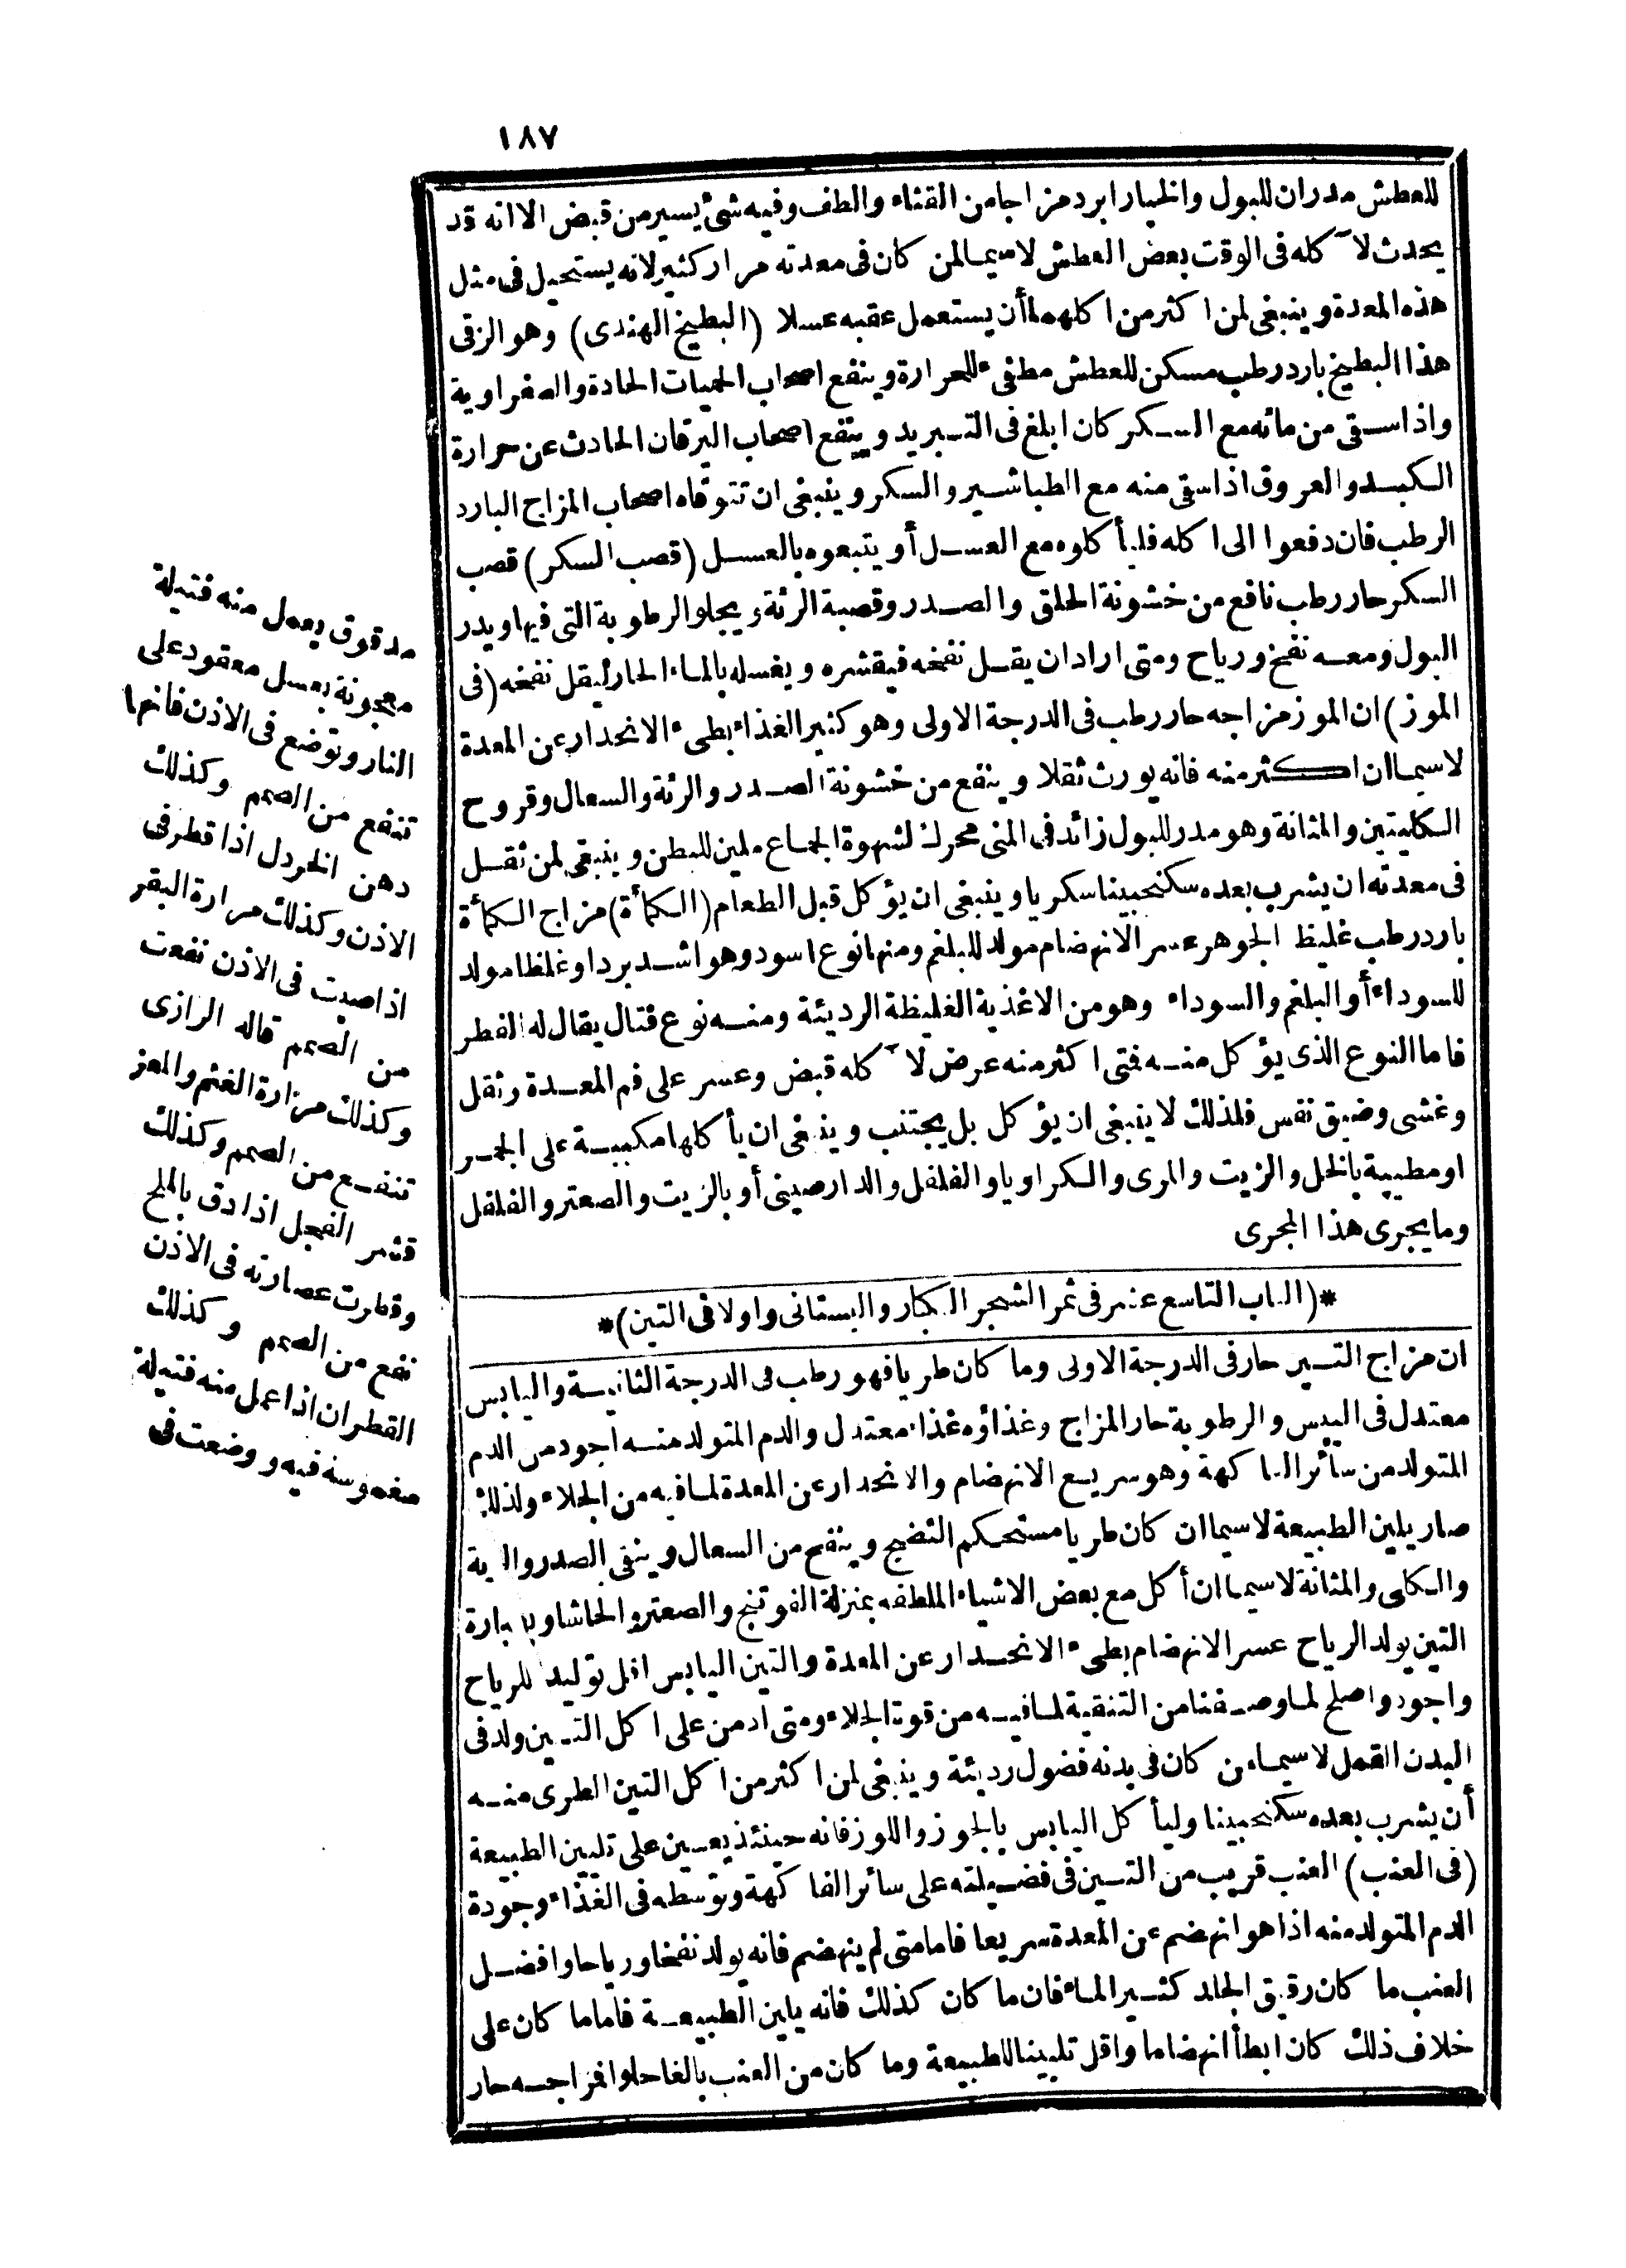 ١٨٧
للعطش مدران للبول والخيار ابرد مزاجا من القثاء والطف وفيه شئ يسير من قبض الا انه قد
يحدث لآ كله فى الوقت بعض العطش لاسيما لمن كان فى معدته مرار كثير لانه يستحيل فى مثل
هذه المعدة وينبغى لمن اكثر من اكلهما أن يستعمل عقبه عسلا (البطيخ الهندى) وهو الزقى
هذا البطيخ بارد رطب مسكن للعطش مطفىء للحرارة وينفع اصحاب الحميات الحادة والصفراوية
واذا سقى من مائه مع السكر كان ابلغ فى التبريد وينفع اصحاب اليرقان الحادث عن حرارة
الكبد والعروق اذا سقى منه مع الطباشير والسكر وينبغى ان تتوقاه اصحاب المزاج البارد
الرطب فان دفعوا الى اكله فليأكلوه مع العسل أو يتبعوه بالعسل (قصب السكر) قصب
السكر حار رطب نافع من خشونة الحلق والصدر وقصبة الرئة ويجلو الرطوبة التى فيها ويدر
البول ومعه نفخ ورياح ومتى اراد ان يقل نفخه فيقشره ويغسله بالماء الحار ليقل نفخه (فى
الموز) ان الموز مزاجه حار رطب فى الدرجة الاولى وهو كثير الغذاء بطىء الانحدار عن المعدة
لاسيما ان اكثر منه فانه يورث ثقلا وينفع من خشونة الصدر والرئة والسعال وقروح
الكليتين والمثانة وهو مدر للبول زائد فى المنى محرك لشهوة الجماع ملين للبطن وينبغى لمن ثقل
فى معدته ان يشرب بعده سكنجبينا سكريا وينبغى ان يؤكل قبل الطعام (الكمأة) مزاج الكمأة
بارد رطب غليظ الجوهر عسر الانهضام مولد للبلغم ومنها نوع اسود وهو اشد بردا وغلظا مولد
للسوداء أو البلغم والسوداء وهو من الاغذية الغليظة الرديئة ومنه نوع قتال يقال له الفطر
فاما النوع الذى يؤكل منه فتى اكثر منه عرض لآ كله قبض وعسر على فم المعدة وثقل
وغشى وضيق نفس فلذلك لا ينبغى ان يؤكل بل يجتنب وينبغى ان يأكلها مكببة على الجمر
او مطيبة بالخل والزيت والمرى والكراويا والفلفل والدارصينى أو بالزيت والصعتر والفلفل
وما يجرى هذا المجرى
*(الباب التاسع عشر فى ثمر الشجر الكبار والبستانى واولا فى التين)*
ان مزاج التين حار فى الدرجة الاولى وما كان طريا فهو رطب فى الدرجة الثانية واليابس
معتدل فى اليبس والرطوبة حار المزاج وغذاؤه غذاء معتدل والدم المتولد منه اجود من الدم
المتولد من سائر الفاكهة وهو سريع الانهضام والانحدار عن المعدة لما فيه من الجلاء ولذلك
صار يلين الطبيعة لاسيما ان كان طريا مستحكم النضج وينفع من السعال وينقى الصدر والرية
والكلى والمثانة لاسيما ان أكل مع بعض الاشياء الملطفه بمنزلة الفوتنج والصعتر والحاشا
التين يولد الرياح عسر الانهضام بطىء الانحدار عن المعدة والتين اليابس اقل توليدا للرياح
واجود واصلح لما وصفنا من التنقية لما فيه من قوة الجلاء ومتى ادمن على اكل التين ولد فى
البدن القمل لاسيما من كان فى بدنه فضول رديئة وينبغى لمن اكثر من اكل التين الطرى منه
أن يشرب بعده سكنجبينا وليأكل اليابس بالجوز واللوز فانه حينئذ يعين على تليين الطبيعة
(فى العنب) العنب قريب من التين فى فضيلته على سائر الفاكهة وتوسطه فى الغذاء وجودة
الدم المتولد منه اذا هو انهضم عن المعدة سريعا فاما متى لم ينهضم فانه يولد نفخا ورياحا وافضل
العنب ما كان رقيق الجلد كثير الماء فان ما كان كذلك فانه يلين الطبيعة فاما ما كان على
خلاف ذلك كان ابطأ انهضاما واقل تليينا للطبيعة وما كان من العنب بالغا حلوا فمزاجه حار
مدقوق يعمل منه فتيلة
معجونة بعسل معقود على
النار وتوضع فى الاذن فانها
تنفع من الصمم وكذلك
دهن الخردل اذا قطر فى
الاذن وكذلك مرارة البقر
اذا صبت فى الاذن نفعت
من الصمم قاله الرازى
وكذلك مرارة الغنم والمعز
تنفع من الصمم وكذلك
قشر الفجل اذا دق بالملح
وقطرت عصارته فى الاذن
نفع من الصمم وكذلك
القطران اذا عمل منه فتيلة
مغموسة فيه ووضعت فى